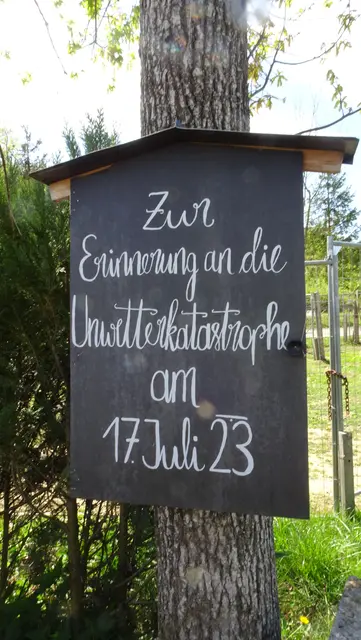 Zur
Erinnerung an die
Unwetterkatastrophe
am
17. Juli 23